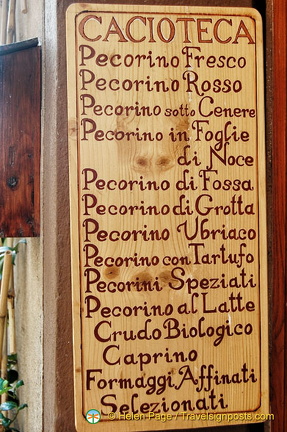 CACIOTECA
Pecorino Fresco
Pecorino Rosso
Pecorino sotto Cenere
Pecorino in Foglie
di Noce
Pecorino di Fossa
Pecorino di Grotta
Pecorino Ubriaco
Pecorino con Tartufo
Pecorini Speziati
Pecorino al Latte
Crudo Biologico
Caprino
Formaggi Affinati
Selezionati
© Helen Page / Travelsignposts.com